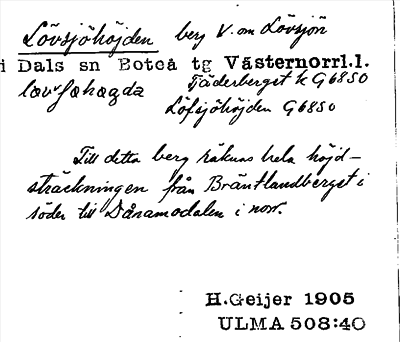 Lövsjöhöjden berg V. om Lövsjön
i Dals sn Boteå tg Västernorrl.l.
lœvʃøhøgda Tjäderberget k G6850
Löfsjöhöjden G6850
Till detta berg räknas hela höjd-
sträckningen från Bräntlandberget i
söder till Dånamodalen i norr.
H.Geijer 1905
ULMA 508:40